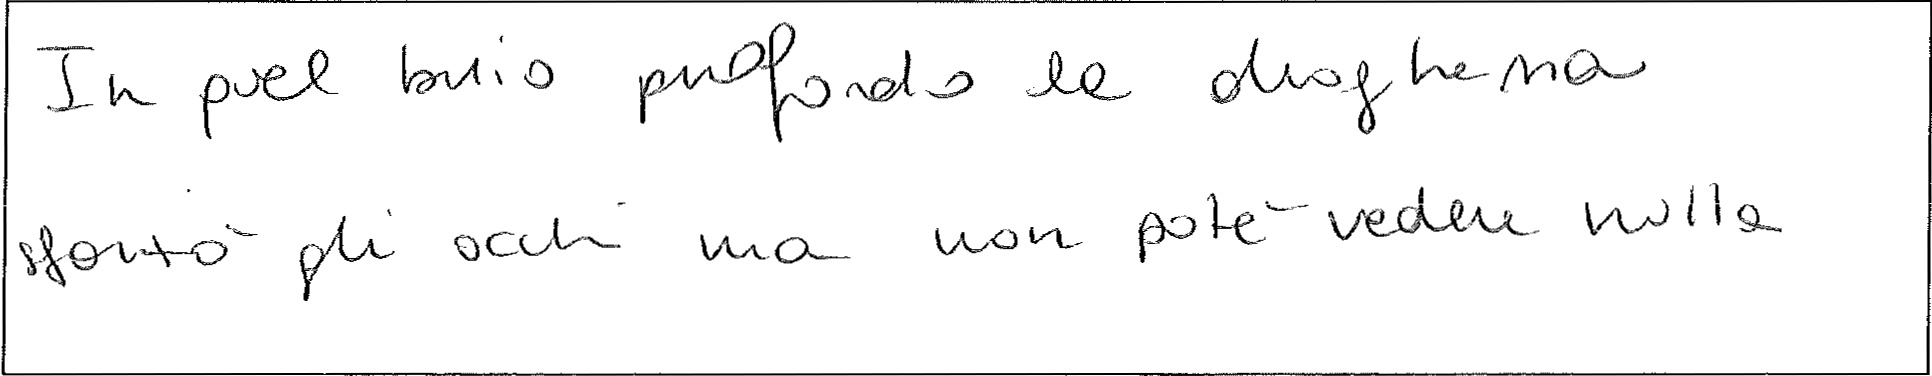 In quel buio profondo la drogheria
sforzò gli occhi ma non poté vedere nulla